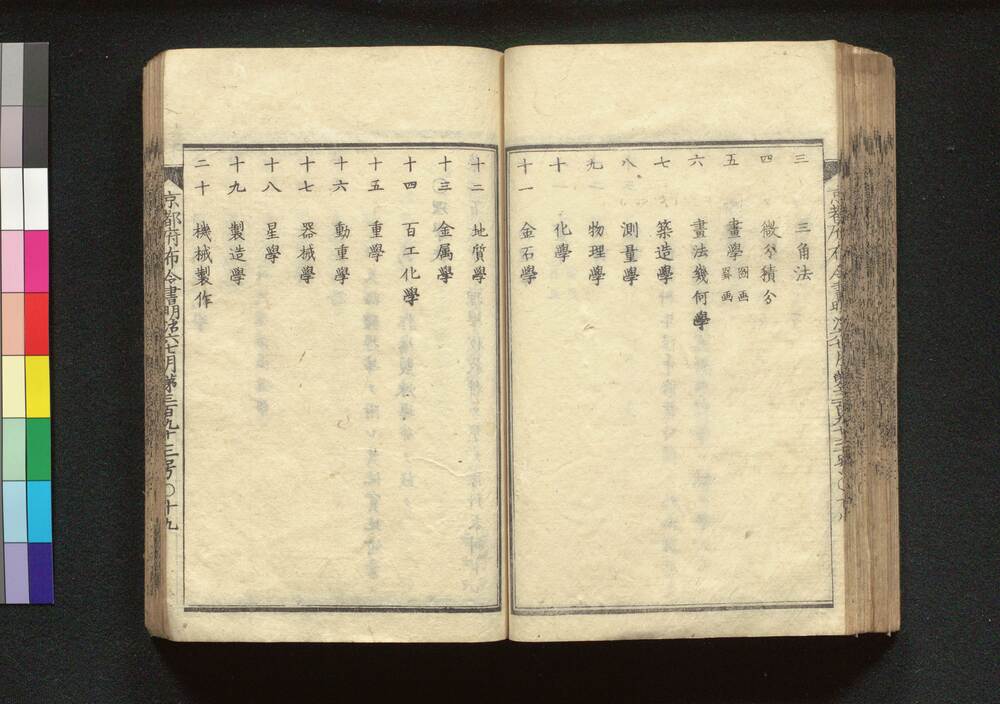 三 三角法
四 微分積分
五 畫學 圖画 罫画
六 畫法幾何學
七 築造學
八 測量學
九 物理學
十 化學
十一 金石學
十二 地質學
十三 金属學
十四 百工化學
十五 重學
十六 動重學
十七 器械學
十八 星學
十九 製造學
二十 機械製作
京都府布令書明治六七月第三百九十三号〇十九